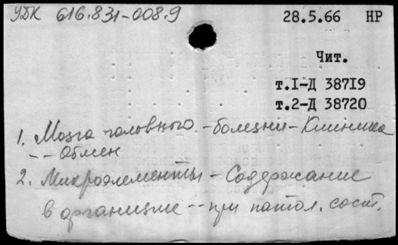 УДК 616.831-008.9
28.5.66 НР
Чит.
т.I-Д 38719
т.2-Д 38720
1. Мозга головного - болезни - Клиника
-- Обмен
2. Микроэлементы - Содержание
в организме -- при патол. сост.